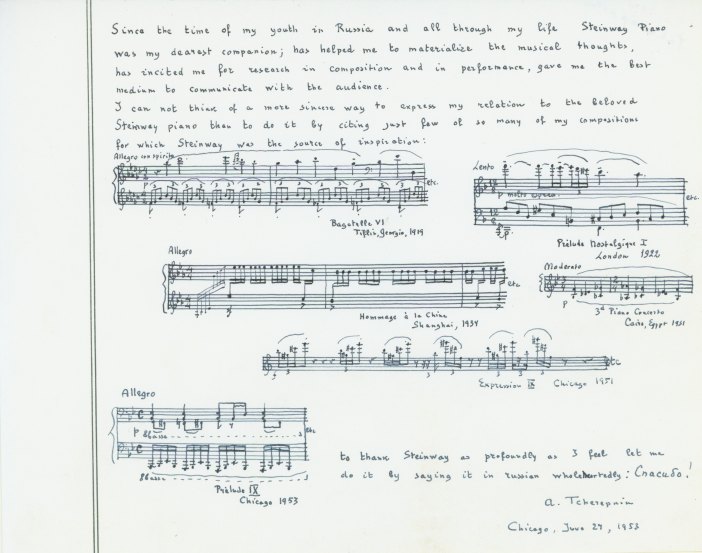 Since the time of my youth in Russia and all through my life Steinway Piano
was my dearest companion; has helped me to materialize the musical thoughts,
has incited me for research in composition and in performance, gave me the best
medium to communicate with the audience.
I can not think of a more sincere way to express my relation to the beloved
Steinway piano than to do it by citing just few of so many of my compositions
for which Steinway was the source of inspiration:
Allegro con spirito
p
etc.
Bagatelle VI
Tiflis, Georgia, 1919
Lento
p molto
etc.
Prélude Nostalgique I
London 1922
Allegro
etc
Hommage à la Chine
Shanghai, 1934
Moderato
p
3d Piano Concerto
Cairo, Egypt 1931
f
etc
Expression IX Chicago 1951
Allegro
p 8 bassa
etc.
8 bassa
Prélude IX
Chicago 1953
to thank Steinway as profoundly as I feel let me
do it by saying it in russian wholeheartedly: Спасибо!
A. Tcherepnin
Chicago, June 27, 1953